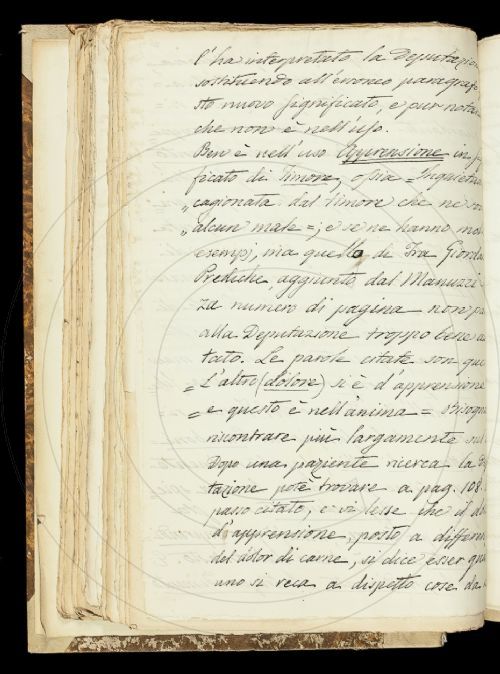 l'ha interpretato la Deputazion
sostituendo all'erroneo paragrafo
sto nuovo significato, e pur notan
che non è nell'uso.
Ben è nell'uso Apprensione in
ficato di timore, ossia = Inquietu
„ cagionata dal timore che ne
„ alcun male =; e se ne hanno mol
esempj, ma quello di Fra Giorda
Prediche, aggiunto dal Manuzzi
za numero di pagina non p
alla Deputazione troppo bene a
tato. Le parole citate son que
= L'altro (dolore) si è d'apprensione
= e questo è nell'anima = Bisogn
riscontrare più largamente sul
Dopo una paziente ricerca la D
tazione potè trovare a pag. 108
passo citato, e vi lesse che il do
d'apprensione, posto a differen
del dolor di carne, si dice esser qua
uno si reca a dispetto cose da